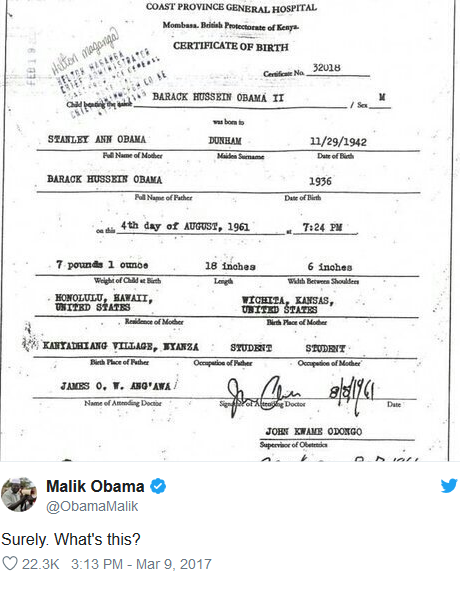 COAST PROVINCE GENERAL HOSPITAL
Mombasa, British Protectorate of Kenya.
CERTIFICATE OF BIRTH
FEB 19
Helton maganga
HELTON MAGANGA
CHIEF ADMINISTRATOR
Certificate No. 32018
Child bearing the name BARACK HUSSEIN OBAMA II / Sex M
was born to
STANLEY ANN OBAMA DUNHAM 11/29/1942
Full Name of Mother Maiden Surname Date of Birth
BARACK HUSSEIN OBAMA 1936
Full Name of Father Date of Birth
on this 4th day of AUGUST, 1961 at 7:24 PM
7 pounds 1 ounce 18 inches 6 inches
Weight of Child at Birth Length Width Between Shoulders
HONOLULU, HAWAII, WICHITA, KANSAS,
UNITED STATES UNITED STATES
Residence of Mother Birth Place of Mother
KANYADHIANG VILLAGE, NYANZA STUDENT STUDENT
Birth Place of Father Occupation of Father Occupation of Mother
JAMES O. W. ANG'AWA 8/8/1961
Name of Attending Doctor Signature of Attending Doctor Date
JOHN KWAME ODONGO
Supervisor of Obstetrics
Malik Obama
@ObamaMalik
Surely. What's this?
22.3K 3:13 PM - Mar 9, 2017